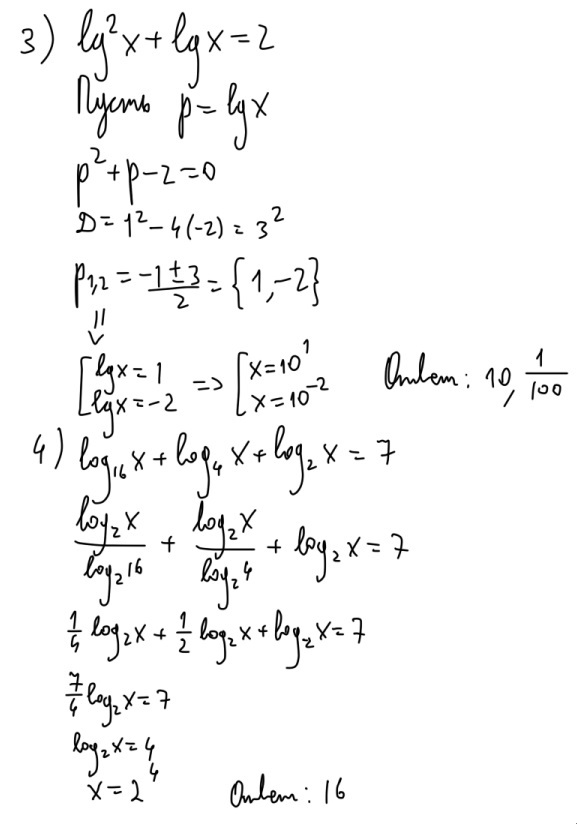 3) lg²x + lgx = 2
Пусть p = lgx
p² + p − 2 = 0
D = 1² − 4(−2) = 3²
p₁,₂ = (−1 ± 3)/2 = {1, −2}
⇓
[lgx = 1 => [x = 10¹
[lgx = −2 [x = 10⁻² Ответ: 10, 1/100
4) log₁₆x + log₄x + log₂x = 7
log₂x/log₂16 + log₂x/log₂4 + log₂x = 7
1/4 log₂x + 1/2 log₂x + log₂x = 7
7/4 log₂x = 7
log₂x = 4
x = 2⁴ Ответ: 16